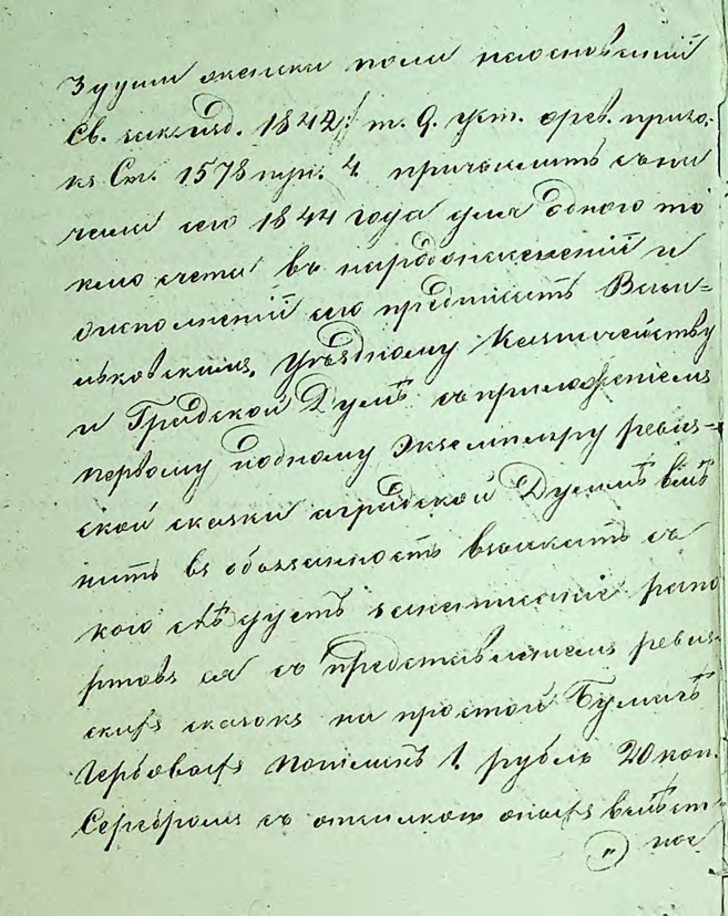 3 души женска пола на основаніи
Св. зак. изд. 1842: т. 9. уст. о рев. прило.
къ Ст. 1578 пун. 4. причислить съ на
чала сего 1844 года для одного то
кмо счета въ народонаселеніи и
о исполненіи сего предписать Василь=
ковскимъ, Уѣздному Казначейству
и Градской Думѣ съ приложеніемъ
первому по одному Экземпляру ревиз=
ской сказки а градской Думѣ вмѣ
нить въ обязанность взыскать съ
кого слѣдуетъ за написаніе рапо
ртовъ ея съ представленіемъ ревиз
скихъ сказокъ на простой Бумагѣ
Гербовыхъ пошлинъ 1. рубль 20 коп.
Серебромъ съ отсылкою оныхъ въ мѣст
ное